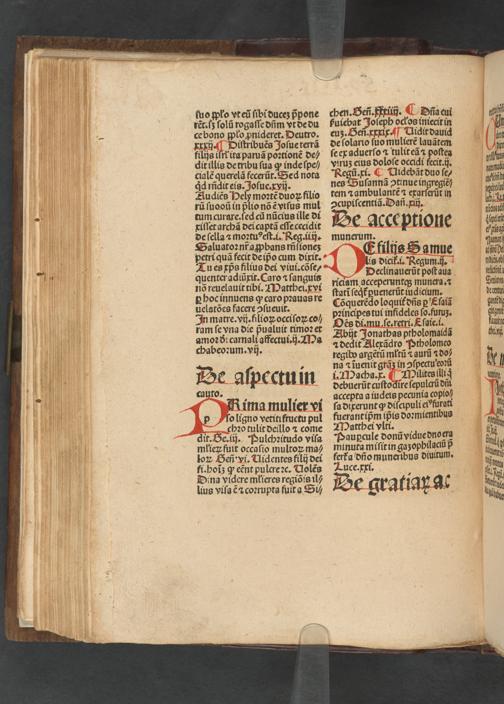 suo pplo vt eū sibi ducez ppone
rēt. is solū rogasse dñm vt de du
ce bono pplo puideret. Deutro.
xxxij. ¶ Distribuēs Josue terrā
filijs isrl ita paruā portionē de-
dit illis de tribu sua ꝙ inde spe-
cialē querelā fecerūt. Sed nota
qd rñdit eis. Josue.xvij.
Audiēs Hely mortē duoꝝ filio
rū suoꝝ in plio nō ē visus mul
tum curare. sed cū nūcius ille di
xisset archā dei captā esse cecidit
de sella & mortuus est. i. Reg. iiij.
Saluator nr̄ approbans rñsionez
petri quā fecit de ipo cum dixit.
Tu es xps filius dei viui. cōse-
quenter adiūxit. Caro & sanguis
nō reuelauit tibi. Matthei.xvi
p hoc innuens ꝙ caro prauas re
uelatões facere ꝯsueuit.
In matre.vij. filioꝝ occisoꝝ co-
ram se vna die pualuit timor et
amor dī carnali affectui. ij. Ma
chabeorum. vij.
De aspectu in
cauto.
PRima mulier vi
so ligno vetiti fructu pul
chro tulit de illo & come
dit. Ge. iij. Pulchritudo visa
mulierū fuit occasio multoꝝ ma-
loꝝ. Geñ. vi. Uidentes filij dei
fi. hoīs ꝙ eēnt pulcre &c. Uolēs
Dina videre mulieres regiōis il-
lius visa ē & corrupta fuit a Si-
chen. Geñ. xxxiiij. ¶ Dña cui
seruiebat Joseph oculos iniecit in
euz. Geñ. xxxix. ¶ Uidit dauid
de solario suo mulierē lauātem
se ex aduerso & tulit eā & postea
virum eius dolose occidi fecit. ij.
Regū. xi. ¶ Uidebāt duo se-
nes Susannā ꝯtinue ingrediē-
tem & ambulantē & exarserūt in
ꝯcupiscentiā. Dañ. xiij.
De acceptione
munerum.
DE filijs Samue
lis dicit̄. i. Regum. ij.
Declinauerūt post aua
riciam acceperuntqꝫ munera. &
statī sedr puerterūt iudicium.
Cōquerēdo loquit̄ dñs p Esaiā
principes tui infideles so. furuz.
Oēs di. mu. se. retri. Esaie. i.
Abijt Jonathas ptholomaidā
& dedit Alexādro Ptholomeo
regibꝰ argētū mltū & aurū & do-
na & īuenit grāz in ꝯspectu eorū
i. Macha. x. ¶ Milites illi ꝙ
debuerūt custodire sepulcrū dñi
accepta a iudeis pecunia copio
sa dixerunt ꝙ discipuli eiꝰ furati
fuerant ipm ipsis dormientibus
Matthei vlti.
Paupcule donū vidue dno era
minuta misit in gazophilaciū p̄
fert̄ a dño muneribus diuitum.
Luce. xxi.
De gratiaꝝ ac